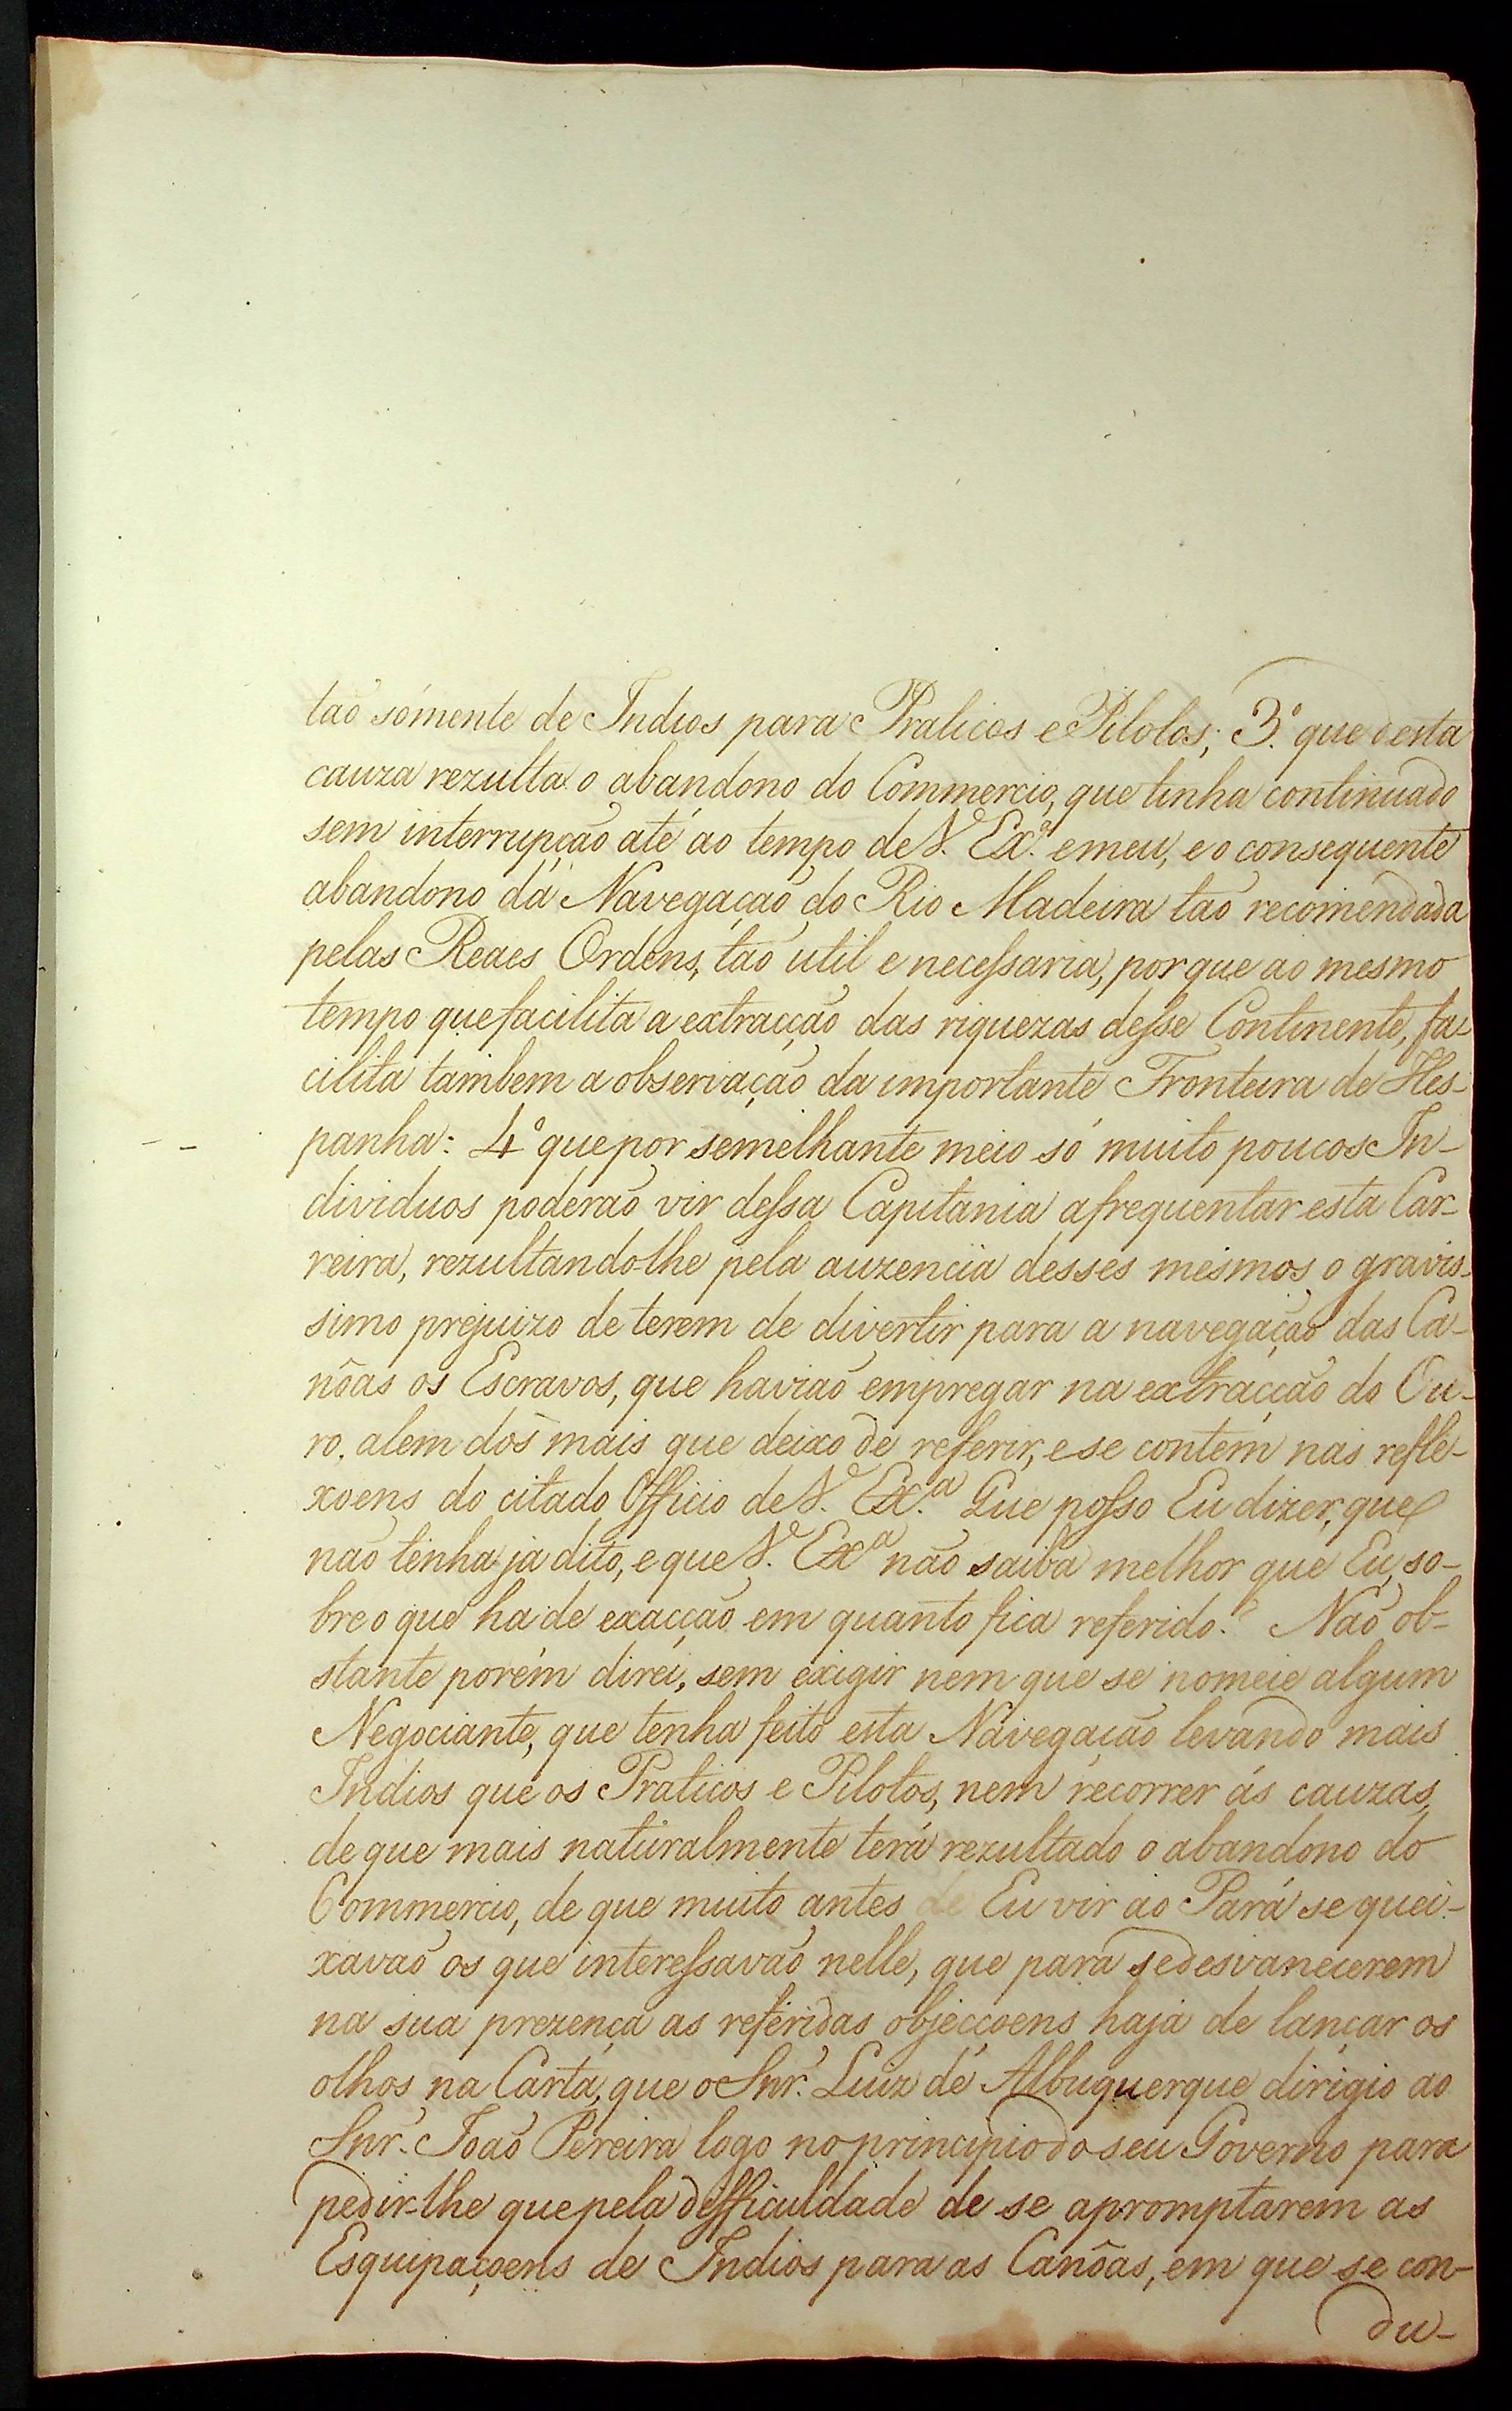 taõ sómente de Indios para Praticos e Pilotos; 3.º que desta
cauza rezulta o abandono do Commercio, que tinha continuado
sem interrupçaõ até ao tempo de V. Ex.ª e meu, e o consequente
abandono da Navegaçaõ do Rio Madeira taõ recomendada
pelas Reaes Ordens, taõ util e necessaria, porque ao mesmo
tempo que facilita a extracçaõ das riquezas desse Continente, fa-
cilita tambem a observaçaõ da importante Fronteira de Hes-
panha: 4º que por semelhante meio só muito poucos In-
dividuos poderaõ vir dessa Capitania a frequentar esta Car-
reira, rezultando-lhe pela auzencia desses mesmos o gravis-
simo prejuizo de terem de divertir para a navegaçaõ das Ca-
nôas os Escravos, que haviaõ empregar na extracçaõ do Ou-
ro, alem dos mais que deixo de referir, e se contém nas refle-
xoens do citado Officio de V. Ex.ª Que posso Eu dizer, que
naõ tenha ja dito, e que V. Exª naõ saiba melhor que Eu, so-
bre o que ha de exacçaõ em quanto fica referido? Naõ ob-
stante porém direi, sem exigir nem que se nomeie algum
Negociante, que tenha feito esta Navegaçaõ levando mais
Indios que os Praticos e Pilotos, nem recorrer ás cauzas,
de que mais naturalmente terá rezultado o abandono do
Commercio, de que muito antes de Eu vir ao Pará se quei-
xavaõ os que interessavaõ nelle, que para se desvanecerem
na sua prezença as referidas objecçoens haja de lançar os
olhos na Carta, que o Snr. Luiz de Albuquerque dirigio ao
Snr. Joaõ Pereira logo no principio do seu Governo para
pedir-lhe que pela difficuldade de se apromptarem as
Esquipaçoens de Indios para as Canôas, em que se con-
du-